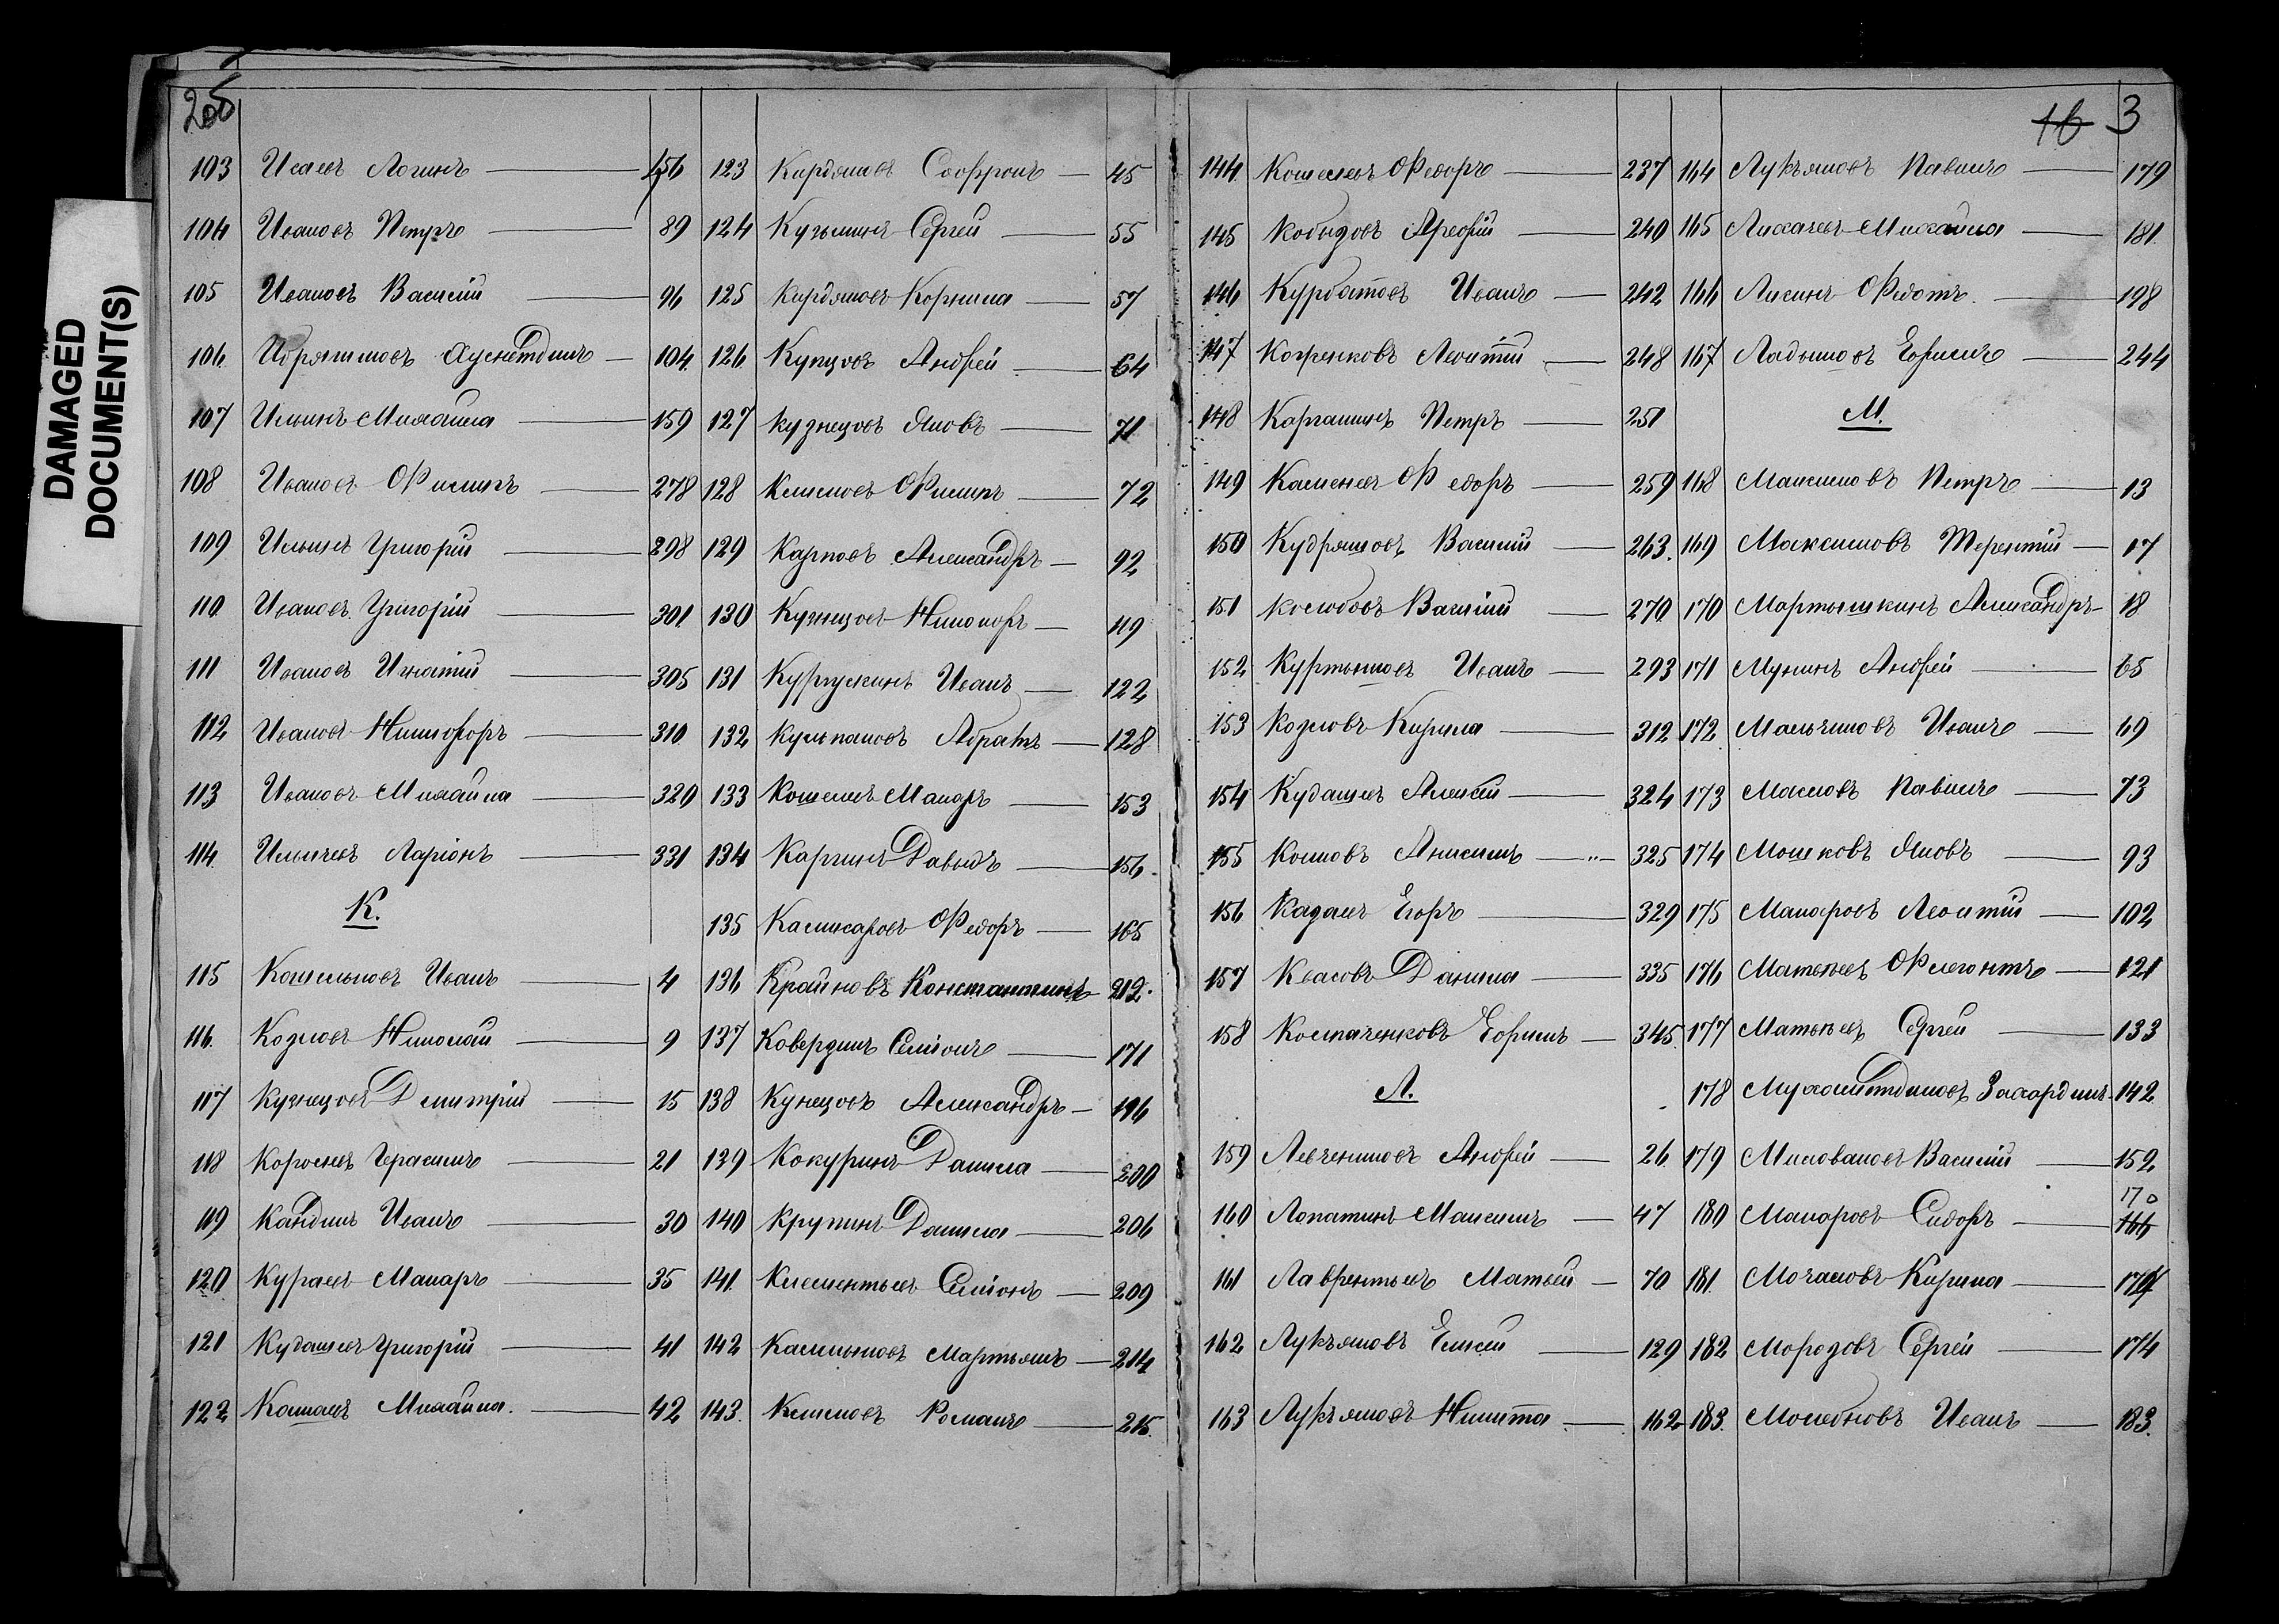 DAMAGED
DOCUMENT(S)
205
103 Исаевъ Логинъ 156
104 Ивановъ Петръ 89
105 Ивановъ Василій 96
106 Ибряшмовъ Хуснетдинъ 104
107 Ильинъ Михайла 159
108 Ивановъ Филипъ 278
109 Ильинъ Григорій 298
110 Ивановъ Григорій 301
111 Ивановъ Игнатій 305
112 Ивановъ Никифоръ 310
113 Ивановъ Михайла 320
114 Ильичевъ Ларіонъ 331
К.
115 Котельновъ Иванъ 4
116 Козловъ Николай 9
117 Кузнецовъ Дмитрій 15
118 Герасимъ 21
119 Кандинъ Иванъ 30
120 Кураевъ Макаръ 35
121 Кудашевъ Григорій 41
122 Михайла. 42
123 Кирдяновъ Софронъ 45
124 Кузьминъ Сергей 55
125 Кирдяновъ Корнила 57
126 Купцовъ Андрей 64
127 Кузнецовъ Яковъ 71
128 Климовъ Филипъ 72
129 Карповъ Александръ 92
130 Кузнецовъ Никоноръ 119
131 Кургускинъ Иванъ 122
132 Кульпановъ Абрамъ 128
133 Кошелевъ Макаръ 153
134 Каргинъ Давыдъ 156
135 Федоръ 165
136 Крайновъ Константинъ 212
137 Ковердинъ Семіонъ 171
138 Кунецовъ Александръ 196
139 Кокуринъ Данила 200
140 Крупинъ Данила 206
141 Клементьевъ Семіонъ 209
142 Калмыковъ Мартьянъ 214
143 Климовъ Романъ 215
16 3
144 Кошелевъ Федоръ 237
145 Кобызовъ Арефій 240
146 Курбатовъ Иванъ 242
147 Леонтій 248
148 Каргашинъ Петръ 251
149 Каменевъ Федоръ 259
150 Кудряшовъ Василій 263
151 Василій 270
152 Куртышовъ Иванъ 293
153 Козловъ Кирила 312
154 Кудашевъ Алексей 324
155 Анисимъ 325
156 Егоръ 329
157 Квасовъ Данила 335
158 Костаченковъ Ефимъ 345
Л.
159 Левченковъ Андрей 26
160 Лопатинъ Максимъ 47
161 Лаврентьевъ Матвей 70
162 Лукъяновъ Елисей 129
163 Лукъяновъ Никита 162
164 Лукъяновъ Павилъ 179
165 Лихачевъ Михайла 181
166 Лисинъ Федотъ 198
167 Ладыновъ Ефимъ 244
М.
168 Максимовъ Петръ 13
169 Максимовъ Терентій 17
170 Мартышкинъ Александръ 18
171 Мунинъ Андрей 65
172 Мальчиковъ Иванъ 69
173 Масловъ Павилъ 73
174 Мошковъ Яковъ 93
175 Макаровъ Леонтій 102
176 Матвѣевъ Флегонтъ 121
177 Матвѣевъ Сергей 133
178 Мухамитдиновъ Закардинъ 142
179 Миловановъ Василій 152
180 Макаровъ Сидоръ 170 166
181 Мочаловъ Кирила
182 Морозовъ Сергей 174
183 Иванъ 183